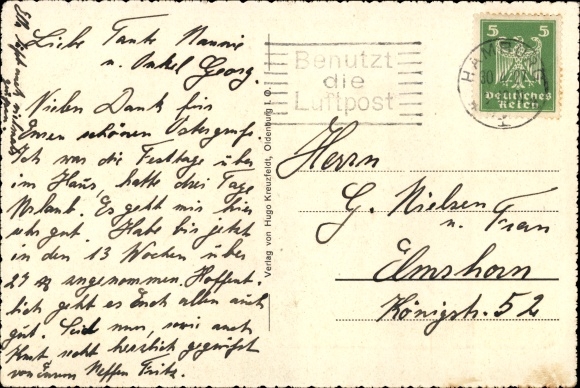 Liebe Tante Nannie
u. Onkel Georg.
Vielen Dank fürs
Euren schönen Ostergruß.
Ich war die Festtage über
im Haus, hatte drei Tage
Urlaub. Es geht mir hier
sehr gut. Habe bis jetzt
in den 13 Wochen über
27 angenommen. Hoffent-
lich geht es Euch allen auch
gut. Seid nun, sowie auch
Kurt recht herzlich gegrüßt
von Eurem Neffen Fritz.
Verlag von Hugo Kreuzfeldt, Oldenburg i. O.
Benutzt
die
Luftpost
HAMBURG
5 5
Deutsches
Reich
Herrn
G. Nielsen
u. Frau
Elmshorn
Königstr. 52